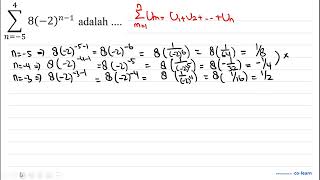 4
∑ 8(−2)ⁿ⁻¹ adalah .... ∑ Uₙ = U₁+U₂+...+Uₙ
n=−5
n=-5 ⇒ 8(-2)^-5-1 = 8(-2)^-6 = 8(1/(-2)^6) = 8(1/64) = 1/8
n=-4 ⇒ 8(-2)^-4-1 = 8(-2)^-5 = 8(1/(-2)^5) = 8(-1/32) = -1/4
n=-3 ⇒ 8(-2)^-3-1 = 8(-2)^-4 = 8(1/(-2)^4) = 8(1/16) = 1/2
co·learn